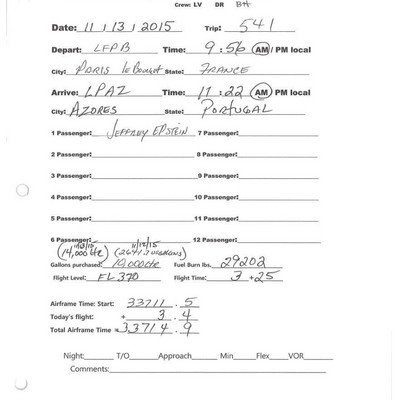 Crew: LV DR BH
Date: 11 / 13 / 2015 Trip: 541
Depart: LFPB Time: 9:56 AM / PM local
City: PARIS LE Bourget State: FRANCE
Arrive: LPAZ Time: 11:22 AM / PM local
City: AZORES State: PORTUGAL
1 Passenger: JEFFREY EPSTEIN 7 Passenger:
2 Passenger: 8 Passenger:
3 Passenger: 9 Passenger:
4 Passenger: 10 Passenger:
5 Passenger: 11 Passenger:
6 Passenger: 12 Passenger:
(14,000 Ltr) (2641.7 US GALLONS)
Gallons purchased: 10,000 Ltr Fuel Burn lbs. 29202
Flight Level: FL370 Flight Time: 3 + 25
Airframe Time: Start: 33711 . 5
Today's flight: + 3 . 4
Total Airframe Time = 33714 . 9
Night: T/O Approach Min Flex VOR
Comments: